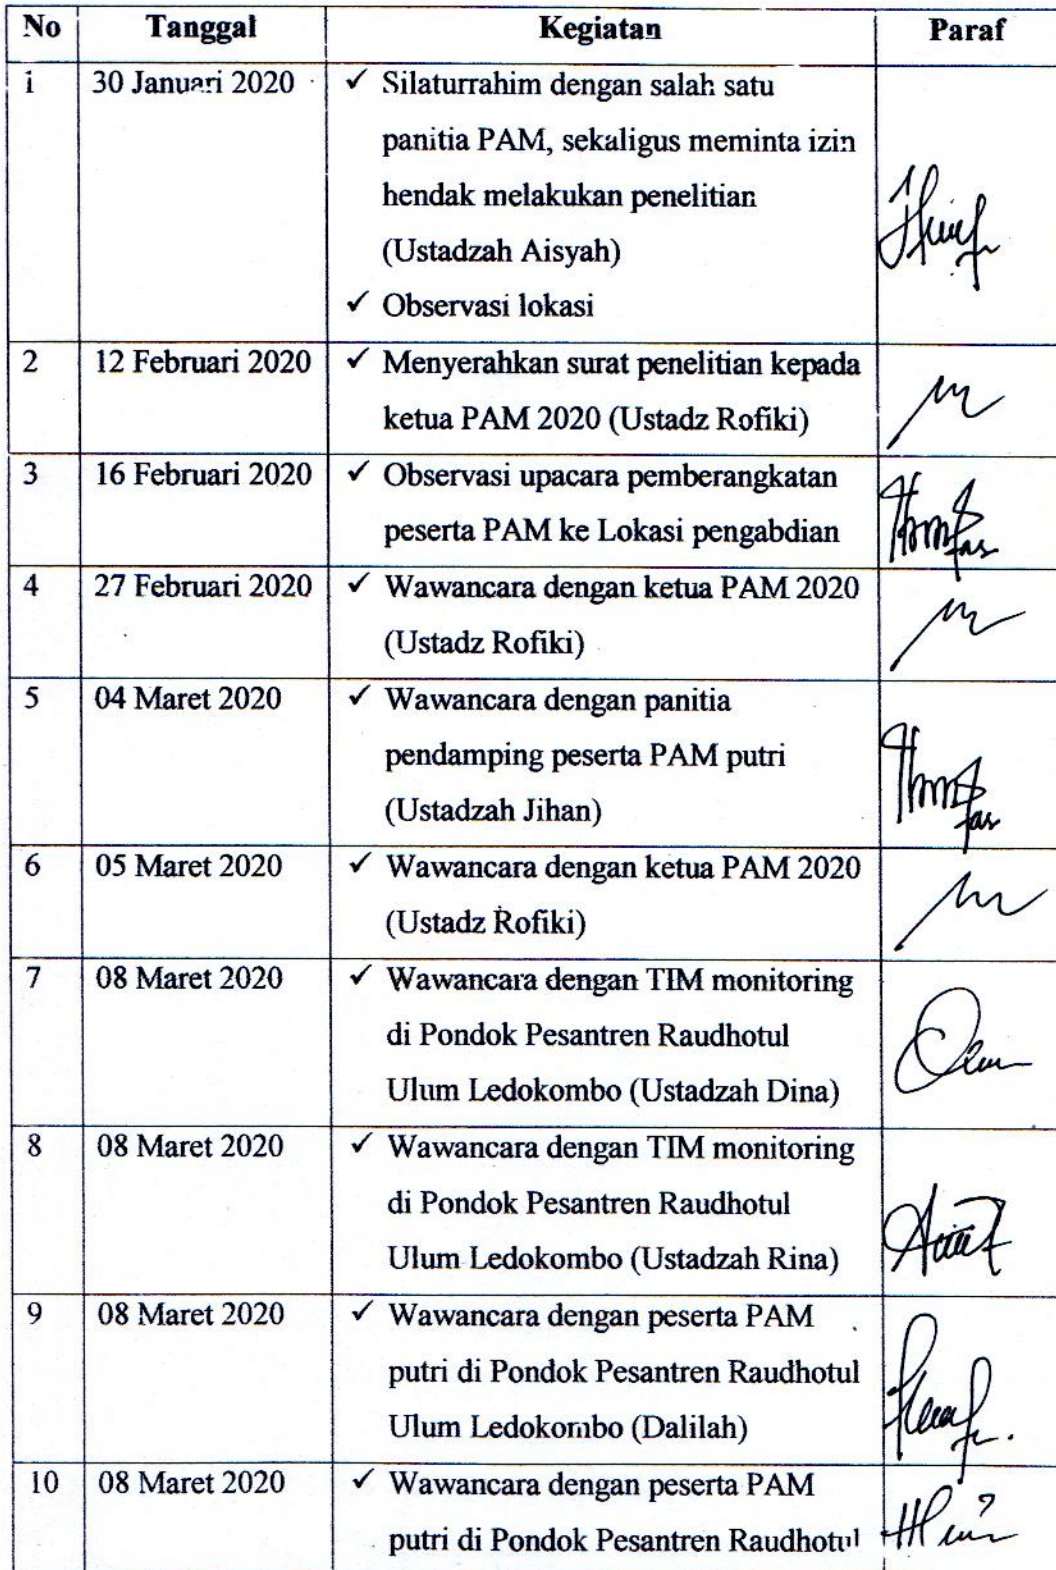 No Tanggal Kegiatan Paraf
1 30 Januari 2020 ✓ Silaturrahim dengan salah satu
panitia PAM, sekaligus meminta izin
hendak melakukan penelitian
(Ustadzah Aisyah)
✓ Observasi lokasi
2 12 Februari 2020 ✓ Menyerahkan surat penelitian kepada
ketua PAM 2020 (Ustadz Rofiki)
3 16 Februari 2020 ✓ Observasi upacara pemberangkatan
peserta PAM ke Lokasi pengabdian
4 27 Februari 2020 ✓ Wawancara dengan ketua PAM 2020
(Ustadz Rofiki)
5 04 Maret 2020 ✓ Wawancara dengan panitia
pendamping peserta PAM putri
(Ustadzah Jihan)
6 05 Maret 2020 ✓ Wawancara dengan ketua PAM 2020
(Ustadz Rofiki)
7 08 Maret 2020 ✓ Wawancara dengan TIM monitoring
di Pondok Pesantren Raudhotul
Ulum Ledokombo (Ustadzah Dina)
8 08 Maret 2020 ✓ Wawancara dengan TIM monitoring
di Pondok Pesantren Raudhotul
Ulum Ledokombo (Ustadzah Rina)
9 08 Maret 2020 ✓ Wawancara dengan peserta PAM
putri di Pondok Pesantren Raudhotul
Ulum Ledokombo (Dalilah)
10 08 Maret 2020 ✓ Wawancara dengan peserta PAM
putri di Pondok Pesantren Raudhotul